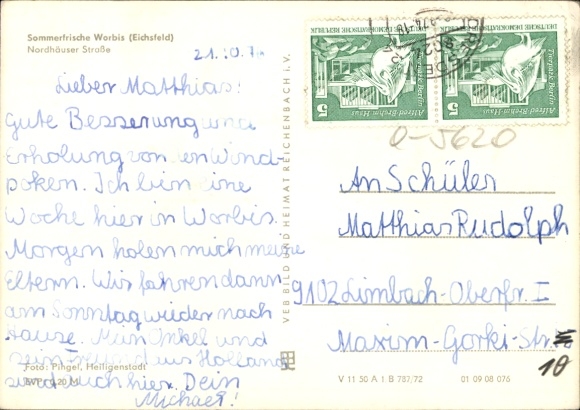 Sommerfrische Worbis (Eichsfeld)
Nordhäuser Straße
Lieber Matthias!
Gute Besserung und
Erholung von den Wind-
poken. Ich bin eine
Woche hier in Worbis.
Morgen holen mich meine
Eltern. Wir fahren dann
am Sonntag wieder nach
Hause. Mein Onkel und
sein Freund aus Holland
sind auch hier. Dein
Michael!
Foto: Pingel, Heiligenstadt
EVP 0,20 M
VEB BILD UND HEIMAT REICHENBACH I.V.
DEUTSCHE DEMOKRATISCHE REPUBLIK
Tierpark Berlin
Alfred-Brehm-Haus
5
DEUTSCHE DEMOKRATISCHE REPUBLIK
Tierpark Berlin
Alfred-Brehm-Haus
5
0-5620
An Schüler
Matthias Rudolph
9102 Limbach-Oberfr. I
Maxim-Gorki-Str.
10
V 11 50 A 1 B 787/72
01 09 08 076